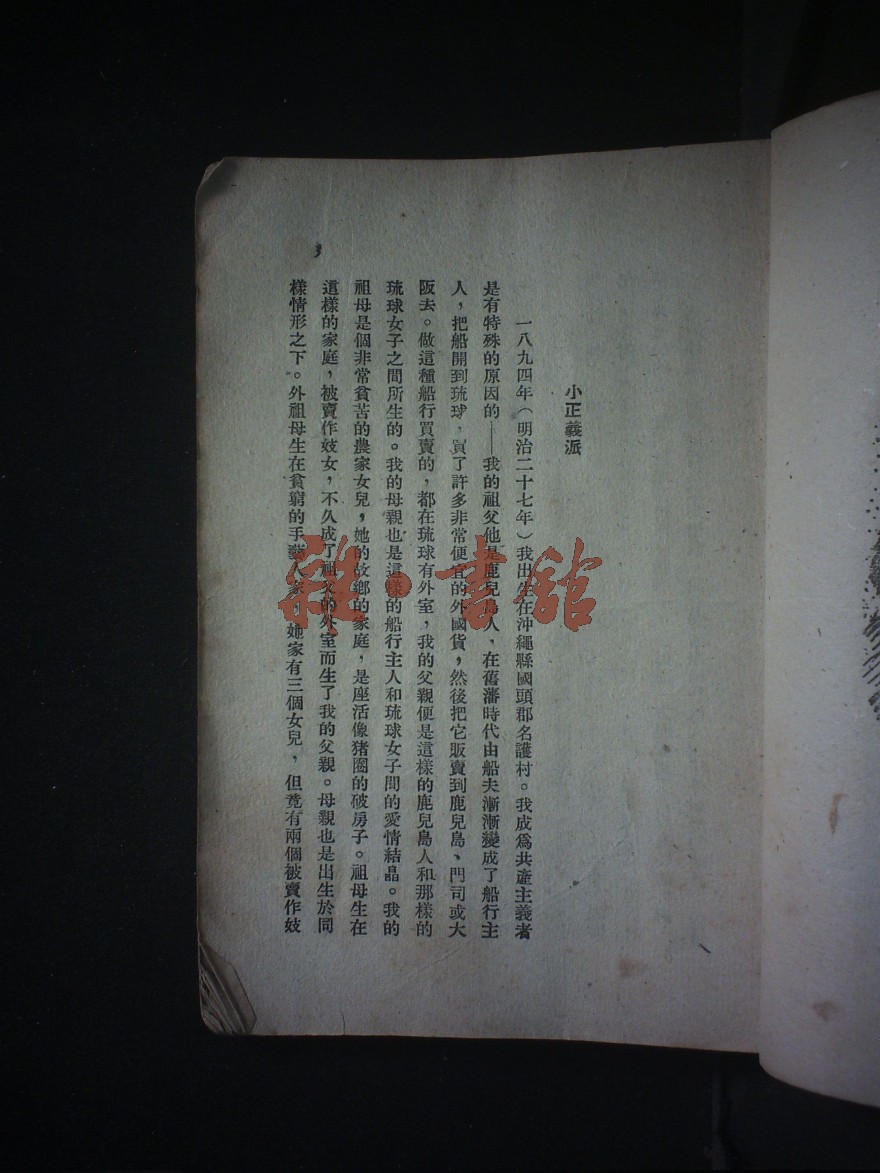 小正義派
一八九四年(明治二十七年)我出生在沖繩縣國頭郡名護村。我成爲共產主義者
是有特殊的原因的——我的祖父他是鹿兒島人,在舊藩時代由船夫漸漸變成了船行主
人,把船開到琉球,買了許多非常便宜的外國貨,然後把它販賣到鹿兒島、門司或大
阪去。做這種船行買賣的,都在琉球有外室,我的父親便是這樣的鹿兒島人和那樣的
琉球女子之間所生的。我的母親也是這樣的船行主人和琉球女子間的愛情結晶。我的
祖母是個非常貧苦的農家女兒,她的故鄉的家庭,是座活像猪圈的破房子。祖母生在
這樣的家庭,被賣作妓女,不久成了祖父的外室而生了我的父親。母親也是出生於同
樣情形之下。外祖母生在貧窮的手藝人家,她家有三個女兒,但竟有兩個被賣作妓
3
雜·書館